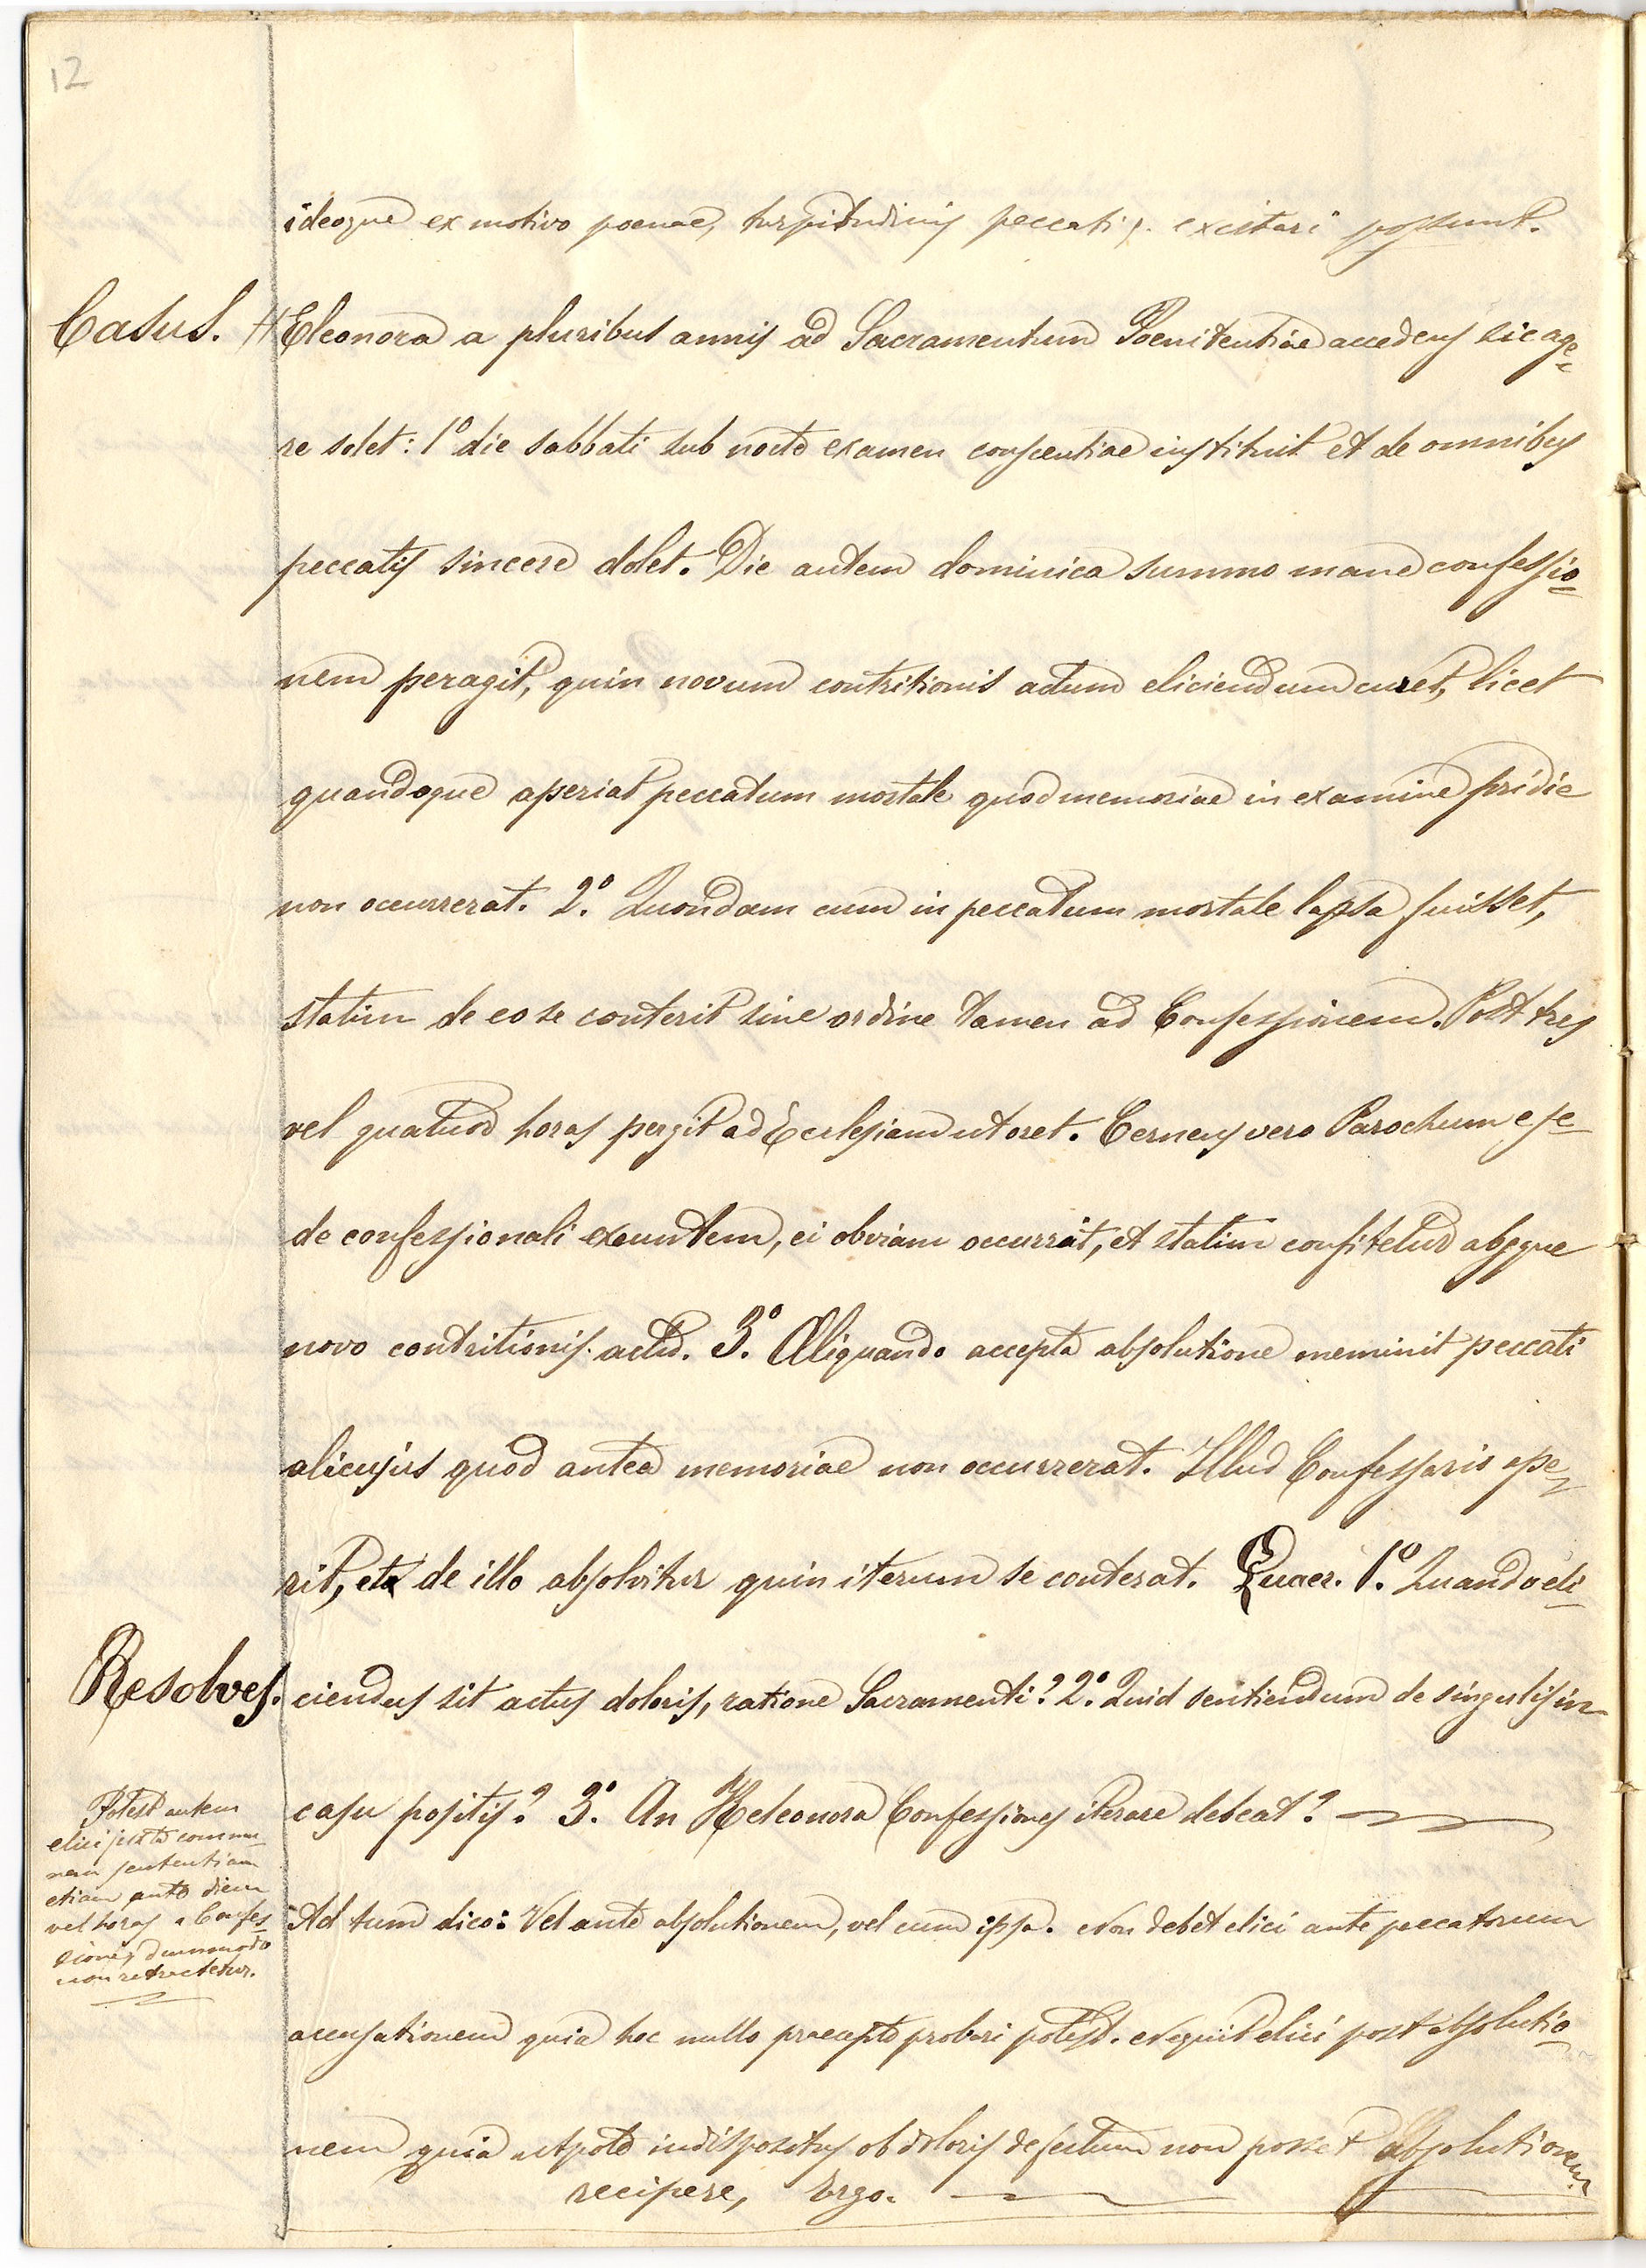 12
ideoque ex motivo poenae, turpitudinis peccati s. excitari possunt.
Casus. # Eleonora a pluribus annis ad Sacramentum Poenitentiae accedens sic age-
re solet: 1º die sabbati sub nocte examen conscentiae instituit et de omnibus
peccatis sincere dolet. Die autem dominica summo mane confessio-
nem peragit, quin novum contritionis actum eliciendum curet, licet
quandoque aperiat peccatum mortale quod memoriae in examine pridie
non occurrerat. 2º. Quondam cum in peccatum mortale lapsa fuisset,
statim de eo se conterit sine ordine tamen ad Confessionem. Post tres
vel quatuor horas pergit ad Ecclesiam ut oret. Cernens vero Parochum e se-
de confessionali exeuntem, ei obviam occurrit, et statim confitetur absque
novo contritionis actu. 3º. Aliquando accepta absolutione meminit peccati
alicujus quod antea memoriae non occurrerat. Illud Confessario ape-
rit, et de illo absolvitur quin iterum se conterat. Quaer. 1º. Quando eli-
Resolves. ciendus sit actus doloris, ratione Sacramenti? 2º. Quid sentiendum de singulis in
casu positis? 3º. An Heleonora Confessiones iterare debeat?
Potest autem
elici juxta commu-
nem sententiam
etiam ante diem
vel horas a Confes-
sione, dummodo
non retractetur.
Ad 1um dico: Vel ante absolutionem, vel cum ipsa. Non debet elici ante peccatorum
accusationem quia hoc nullo praecepto probari potest. Nequit elici post absolutio-
nem quia utpote indispositus ob doloris defectum non posset absolutionem
recipere, Ergo.